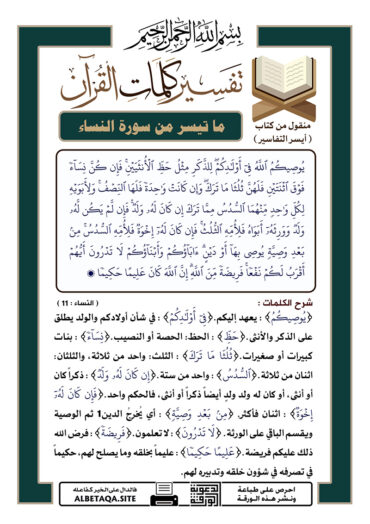 بِسْمِ اللَّهِ الرَّحْمَٰنِ الرَّحِيمِ
تفسير كلمات القرآن
ما تيسر من سورة النساء
منقول من كتاب
( أيسر التفاسير )
يُوصِيكُمُ ٱللَّهُ فِىٓ أَوْلَـٰدِكُمْ ۖ لِلذَّكَرِ مِثْلُ حَظِّ ٱلْأُنثَيَيْنِ ۚ فَإِن كُنَّ نِسَآءً
فَوْقَ ٱثْنَتَيْنِ فَلَهُنَّ ثُلُثَا مَا تَرَكَ ۖ وَإِن كَانَتْ وَٰحِدَةً فَلَهَا ٱلنِّصْفُ ۚ وَلِأَبَوَيْهِ
لِكُلِّ وَٰحِدٍ مِّنْهُمَا ٱلسُّدُسُ مِمَّا تَرَكَ إِن كَانَ لَهُۥ وَلَدٌ ۚ فَإِن لَّمْ يَكُن لَّهُۥ
وَلَدٌ وَوَرِثَهُۥٓ أَبَوَاهُ فَلِأُمِّهِ ٱلثُّلُثُ ۚ فَإِن كَانَ لَهُۥٓ إِخْوَةٌ فَلِأُمِّهِ ٱلسُّدُسُ ۚ مِنۢ
بَعْدِ وَصِيَّةٍ يُوصِى بِهَآ أَوْ دَيْنٍ ۗ ءَابَآؤُكُمْ وَأَبْنَآؤُكُمْ لَا تَدْرُونَ أَيُّهُمْ
أَقْرَبُ لَكُمْ نَفْعًا ۚ فَرِيضَةً مِّنَ ٱللَّهِ ۗ إِنَّ ٱللَّهَ كَانَ عَلِيمًا حَكِيمًا
شرح الكلمات : ( النساء : 11 )
﴿يُوصِيكُمُ﴾ : يعهد إليكم. ﴿فِىٓ أَوْلَـٰدِكُمْ﴾ : في شأن أولادكم والولد يطلق
على الذكر والأنثى. ﴿حَظِّ﴾ : الحظ: الحصة أو النصيب. ﴿نِسَآءً﴾ : بنات
كبيرات أو صغيرات. ﴿ثُلُثَا مَا تَرَكَ﴾ : الثلث: واحد من ثلاثة، والثلثان:
اثنان من ثلاثة. ﴿ٱلسُّدُسُ﴾ : واحد من ستة. ﴿إِن كَانَ لَهُۥ وَلَدٌ﴾ : ذكراً كان
أو أنثى، أو كان له ولد ولدٍ أيضاً ذكراً أو أنثى، فالحكم واحد. ﴿فَإِن كَانَ لَهُۥٓ
إِخْوَةٌ﴾ : اثنان فأكثر. ﴿مِنۢ بَعْدِ وَصِيَّةٍ﴾ : أي يُخرجُ الدين1 ثم الوصية
ويقسم الباقي على الورثة. ﴿لَا تَدْرُونَ﴾ : لا تعلمون. ﴿فَرِيضَةً﴾ : فرض الله
ذلك عليكم فريضة. ﴿عَلِيمًا حَكِيمًا﴾ : عليماً بخلقه وما يصلح لهم، حكيماً
في تصرفه في شؤون خلقه وتدبيره لهم.
احرص على طباعة
ونشر هذه الورقة
الدعوية
الورقة
فالدال على الخير كفاعله
ALBETAQA.SITE